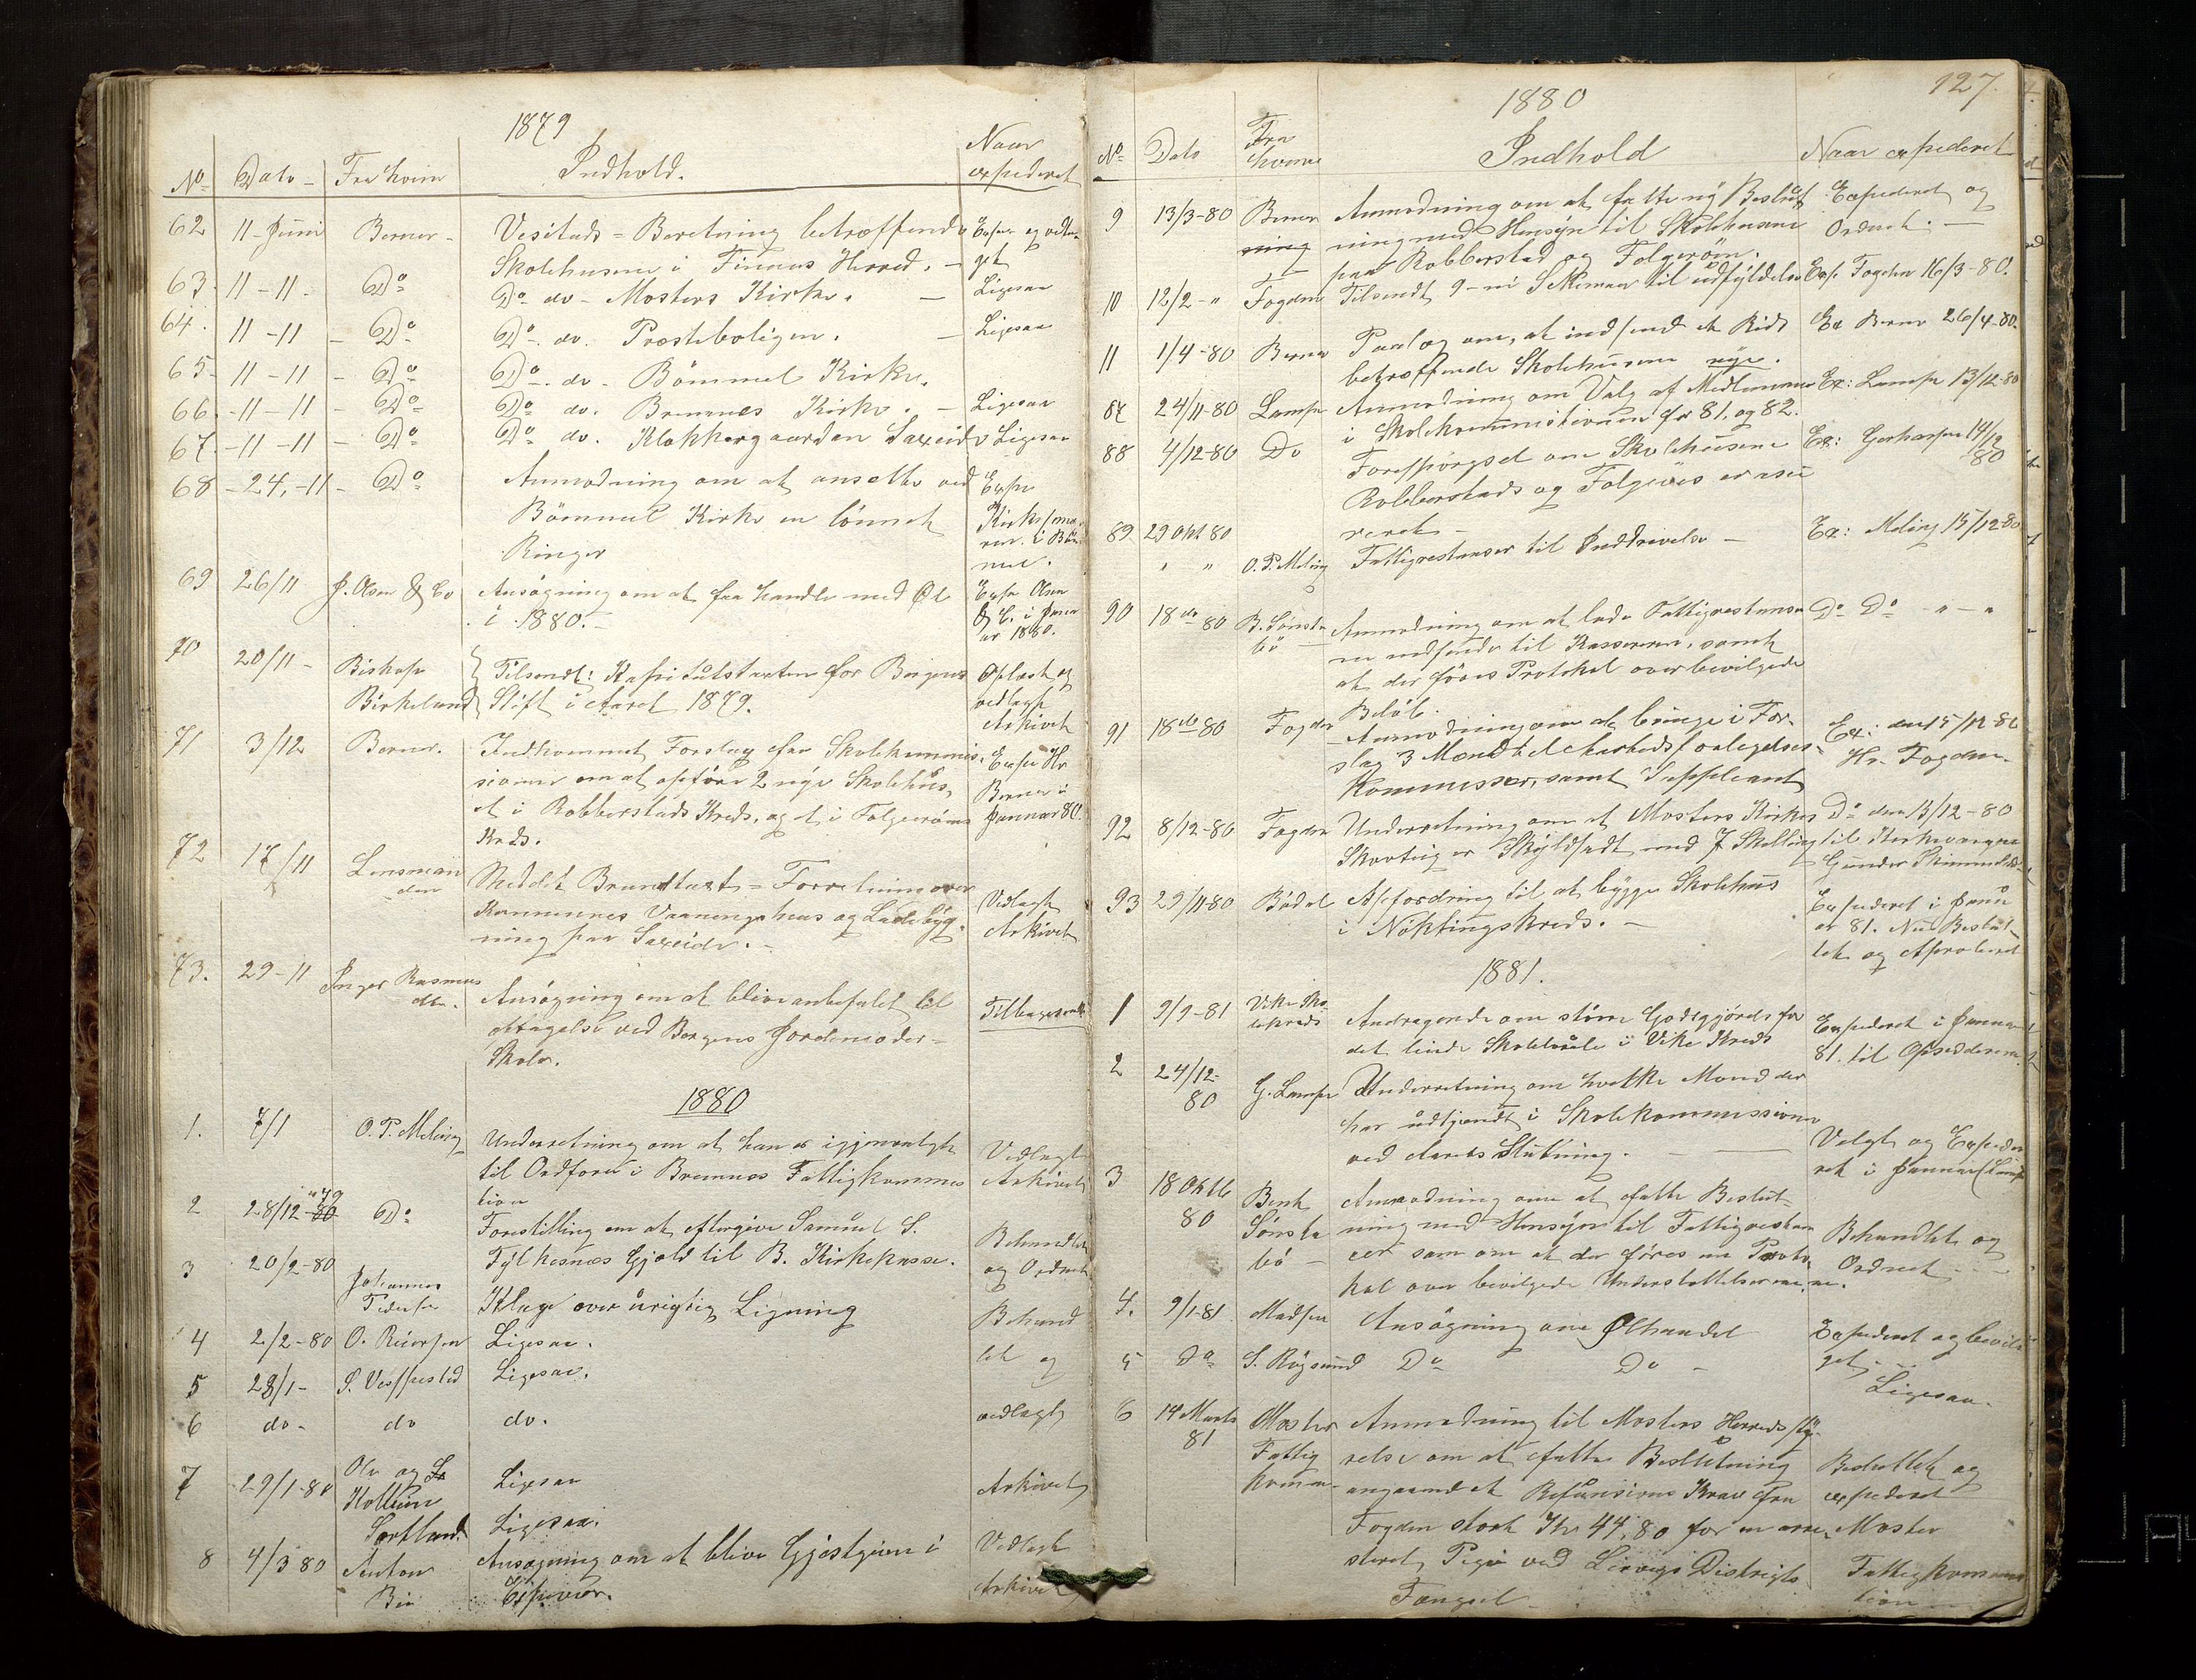 1879
No Dato Fra hvem Indhold. Naar
expederet
62 11 - Juni Berner - Visitads = Beretning betræffende Exper og vedla-
Skolehusene i Finnaas Herred. - get
63 11 - 11 - Do Do do - Mosters Kirke. - Ligesaa
64. 11 - 11 - Do Do do. Præsteboligen. - Ligesaa
65 11 - 11 - Do Do do - Bömmel Kirke.
66. - 11 - 11 - Do Do do. Bremnes Kirke. - Ligesaa
67. - 11 - 11 - Do Do do. Klokkergaarden Saxeide Ligesaa
68 - 24. - 11 - Do Anmodning om at ansætte ved
Bömmel Kirke en lönnet
Ringer
69 26/11 J. Olsen & Co Ansögning om at faa handle med Øl Exp Olsen
i 1880. - & C. i Janu
ar 1880.
70 20/11 - Biskop Tilsendt: Kapitulstaxten for Bergens Oplæst og
Birkeland Stift i Aaret 1879. vedlagt
Arkivet
71 3/12 Berner. Indkommet Forslag fra Skolekommis- Exper Hr
sionen om at opföre 2 nye Skolehus, Berner i
et i Robberstads Kreds, og et i Folgeröens Januar 80.
Kreds.
72 17/11 Lensman
den Meddelt Brandtaxt = Forretning over Vedlagt
Kommunes Vaaningshus og Ladebyg- Arkivet
ning paa Saxeide. -
73. 29 - 11 Inger Rasmus
dtr. Ansögning om at blive anbefalet til Tilbagesendt
Optagelse ved Bergens Jordemoder =
Skole.
1880
1. 7/1 O. P. Meling Underretning om at han er igjenvalgt Vedlagt
til Ordförer i Bremnes Fattigkommis Arkivet
sion
2 28/12 - 79 Do Forestilling om at eftergive Samuel S.
Fylkesnæs Gjæld til B. Kirkekasse. Behandlet
og Ordnet
3 20/2 - 80 Johannes
Pedersen Klage over urigtig Ligning Behand
4 2/2 - 80 O. Ligesaa. let og
5 28/1 - S. Vespestad Ligesaa.
6 do - do do. vedlagt
7 29/1 - 80 Ole og Ligesaa Arkivet
Sortland. Ligesaa.
8 4/3 80 Anton Ansögning om at blive Gjæstgiver i Vedlagt
Espevær. Arkivet
127.
1880
No Dato Fra
hvem Indhold Naar expederet
9 13/3 - 80 Berner Anmodning om at fatte ny Beslut Expederet og
ning med Hensyn til Skolehusene Ordnet. -
paa Robberstad og Folgeröen.
10 12/2 - " Fogden Tilsendt 9 - ni Skemaer til udfyldelse Exp. Fogden 16/3 - 80.
11 1/4 - 80 Berner Paalæg om, at indsende et Rids Ex Berner 26/4 - 80.
betræffende Skolehusene nye.
87 24/11 - 80 Lampe Anmodning om Valg af Medlemmer Ex: Lampe 13/12 - 80
i Skolekommissionen for 81. og 82.
88 4/12 - 80 Do Forespörgsel om Skolehusene Ex: 14/12
Robberstads og Folgeröes er assu 80
reret -
89 29 Okt 80
" " O. P. Meling Fattigrestanser til Inddrivelse - Ex: Meling 15/12 - 80
90 18 do 80 B. Sönsta
bö - Anmodning om at lade Fattigrestanser Do Do " - "
ne indsende til Kasserer, samt
at der föres Protokol over bevilgede
Belöb.
91 18 do 80 Fogden - Anmodning om at bringe i For- Ex: den 15/12 80
slag 3 Mænd til Hr. Fogden.
Kommissær, samt Suppleant
92 8/12 - 80 Fogden Underretning om at Mosters Kirkes Do den 13/12 - 80
Skovteig er Skyldsadt med 7 Skilling til Kirkeværgen
Gunder
93 29/11 - 80 Bådal Opfordring til at bygge Skolehus Expederet i Janu
i Nöklingskreds. - ar 81. Nu Beslut-
tet og Aproberet
1881.
1 9/9 - 81 Vike Sko
lekreds Andragende om större Godtgjörelse for Expederet i Januar
det leiede Skolelokale i Vike Kreds 81. til Opsidderne.
2 24/12 -
80 G. Lampe Underretning om hvilke Mænd der
har udtjendt i Skolekommissionen
ved Aarets Slutning. - Valgt og Expede
ret i Januar (Lampe
3 18 Oktb
80 Berth
Sönsta
bö - Anmodning om at fatte Beslut-
ning med Hensyn til Fattigrestan
cer som om at der föres en Proto- Behandlet og
kol over bevilgede Understöttelserne. Ordnet -
4. 9/1 - 81 Madsen Ansögning om Ølhandel Expederet og bevil
get.
5 Do S. Röysund Do Do - Ligesaa.
6 14 Marts
81 Moster
Fattig
komm. Anmodning til Mosters Herredssty-
relse om at fatte Beslutning Besluttet og
angaaende et Refusions Krav fra expederet
Fogden stort Kr 44,80 for en arre- Moster
steret Pige ved Lervigs Distrigts Fattigkommis
Fængsel - sion